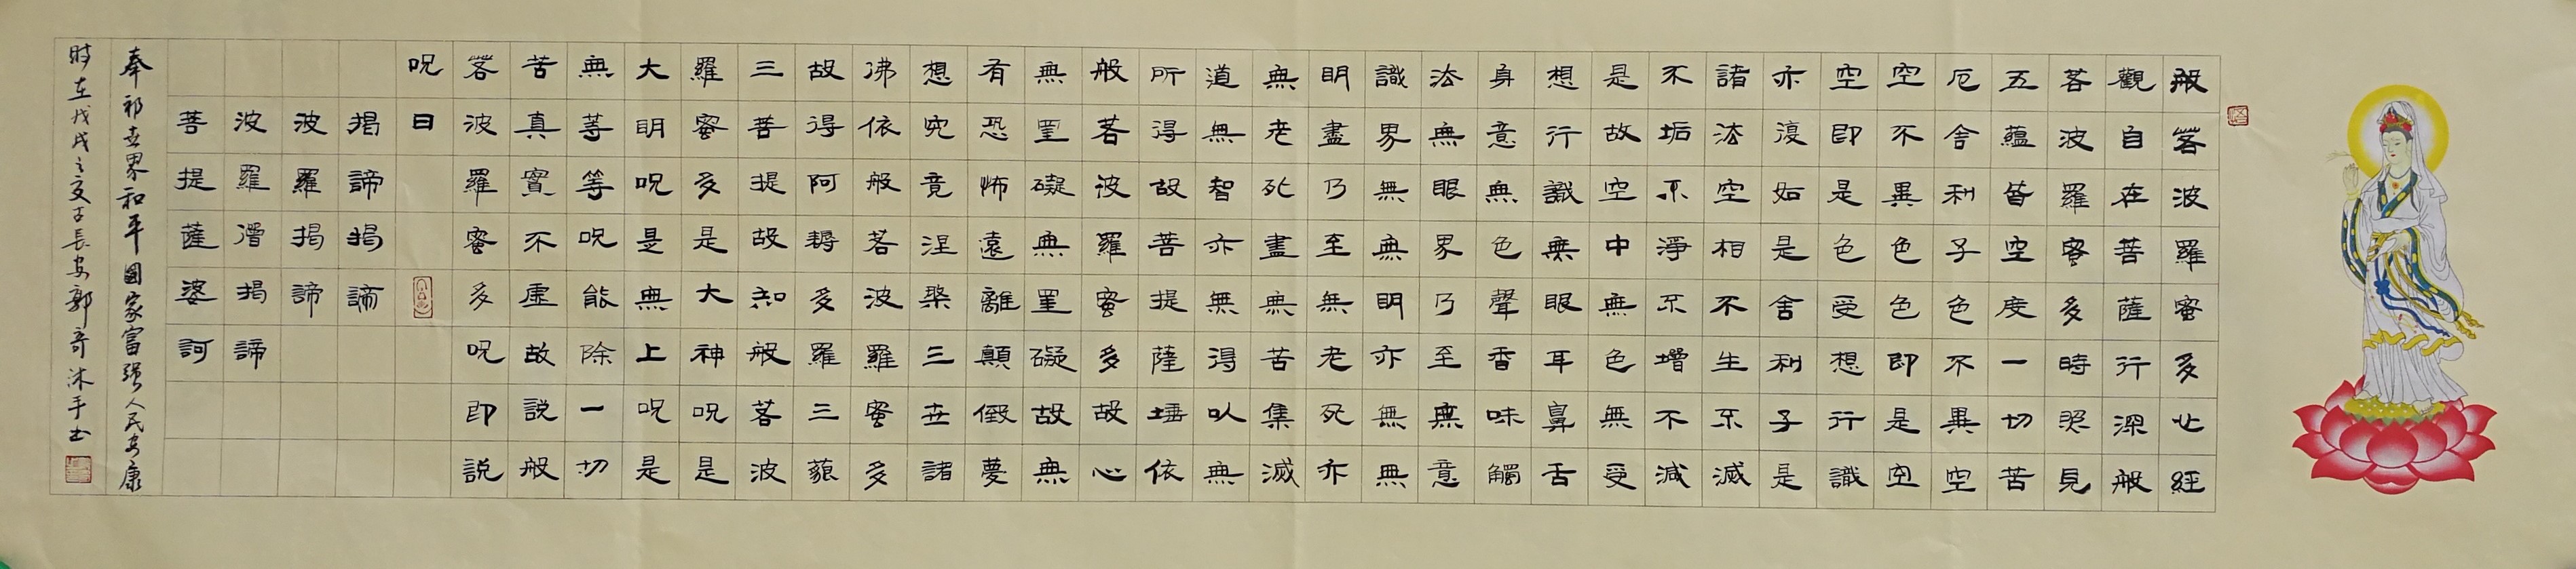 般若波羅蜜多心經
觀自在菩薩行深般
若波羅蜜多時照見
五蘊皆空度一切苦
厄舍利子色不異空
空不異色色即是空
空即是色受想行識
亦復如是舍利子是
諸法空相不生不滅
不垢不淨不增不減
是故空中無色無受
想行識無眼耳鼻舌
身意無色聲香味觸
法無眼界乃至無意
識界無無明亦無無
明盡乃至無老死亦
無老死盡無苦集滅
道無智亦無得以無
所得故菩提薩埵依
般若波羅蜜多故心
無罣礙無罣礙故無
有恐怖遠離顛倒夢
想究竟涅槃三世諸
佛依般若波羅蜜多
故得阿耨多羅三藐
三菩提故知般若波
羅蜜多是大神呪是
大明呪是無上呪是
無等等呪能除一切
苦真實不虛故說般
若波羅蜜多呪即說
呪曰
揭諦揭諦
波羅揭諦
波羅僧揭諦
菩提薩婆訶
奉祈世界和平國家富強人民安康
時在戊戌之夏于長安郭奇沐手書